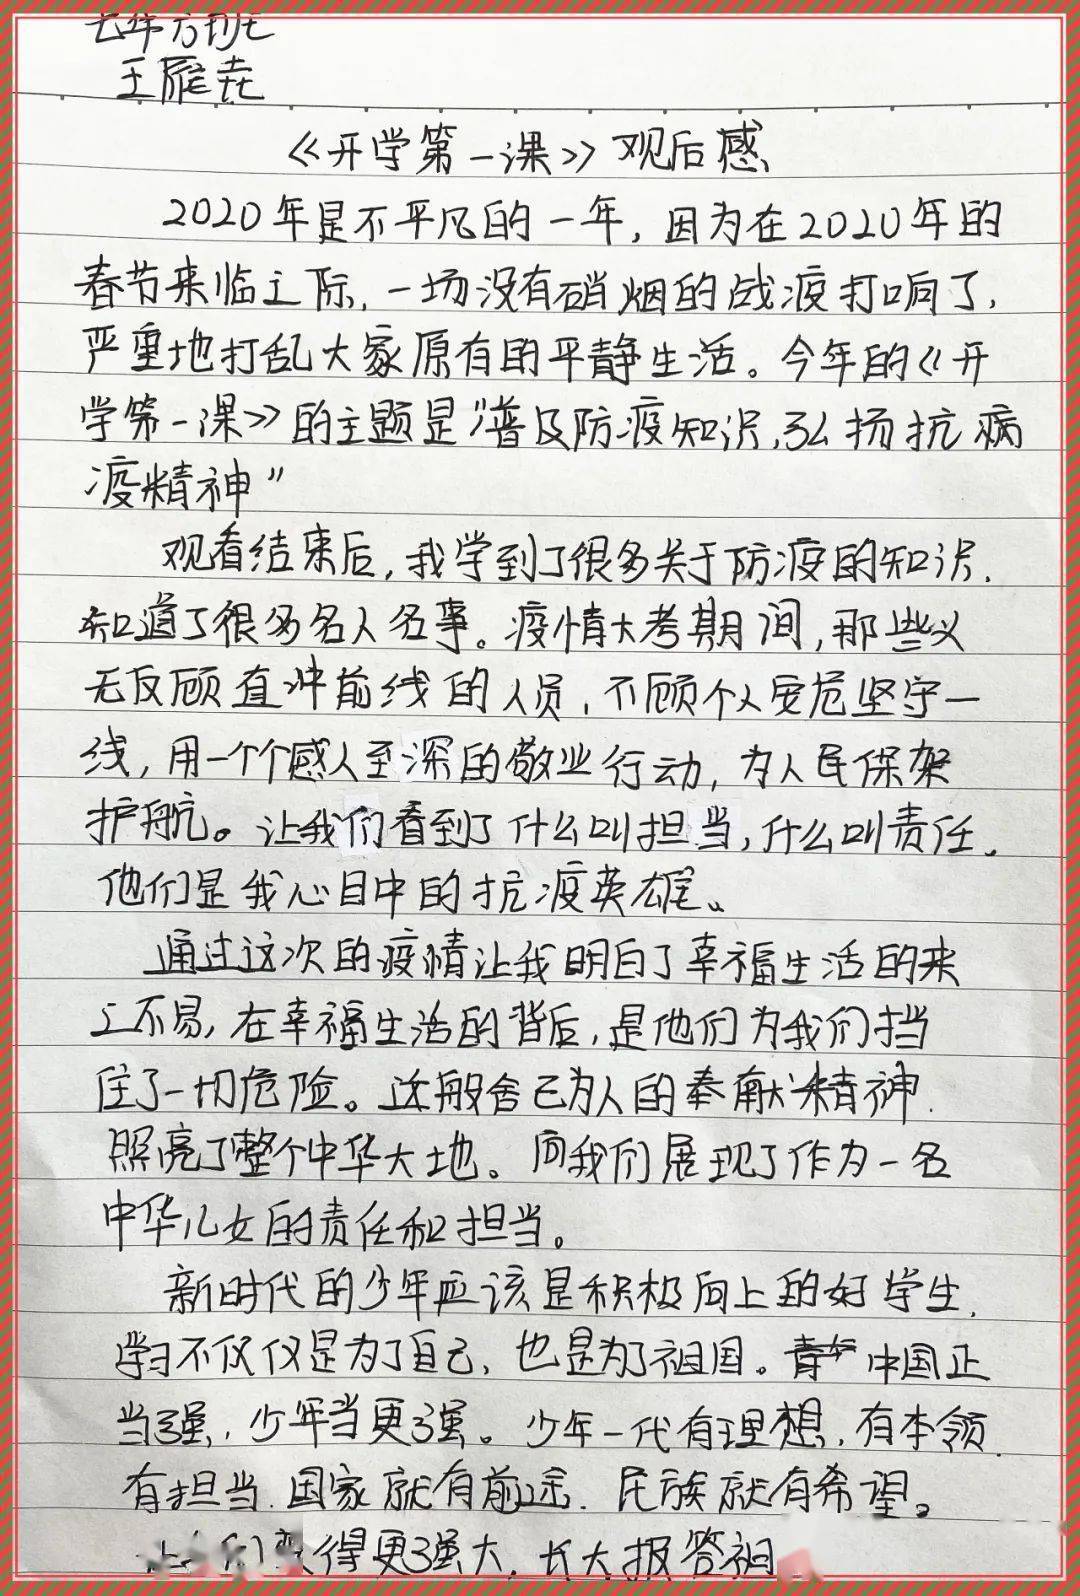 七年六班
王雁垚
《开学第一课》观后感
2020年是不平凡的一年，因为在2020年的
春节来临之际，一场没有硝烟的战疫打响了，
严重地打乱大家原有的平静生活。今年的《开
学第一课》的主题是“普及防疫知识，弘扬抗病
疫精神”
观看结束后，我学到了很多关于防疫的知识，
知道了很多名人名事。疫情大考期间，那些义
无反顾直冲前线的人员，不顾个人安危坚守一
线，用一个个感人至深的敬业行动，为人民保架
护航。让我们看到了什么叫担当，什么叫责任。
他们是我心目中的抗疫英雄。
通过这次的疫情让我明白了幸福生活的来
之不易，在幸福生活的背后，是他们为我们挡
住了一切危险。这般舍己为人的奉献精神，
照亮了整个中华大地。向我们展现了作为一名
中华儿女的责任和担当。
新时代的少年应该是积极向上的好学生，
学习不仅仅是为了自己，也是为了祖国。中国正
当强，少年当更强。少年一代有理想，有本领，
有担当，国家就有前途，民族就有希望。
们变得更强大，长大报答祖